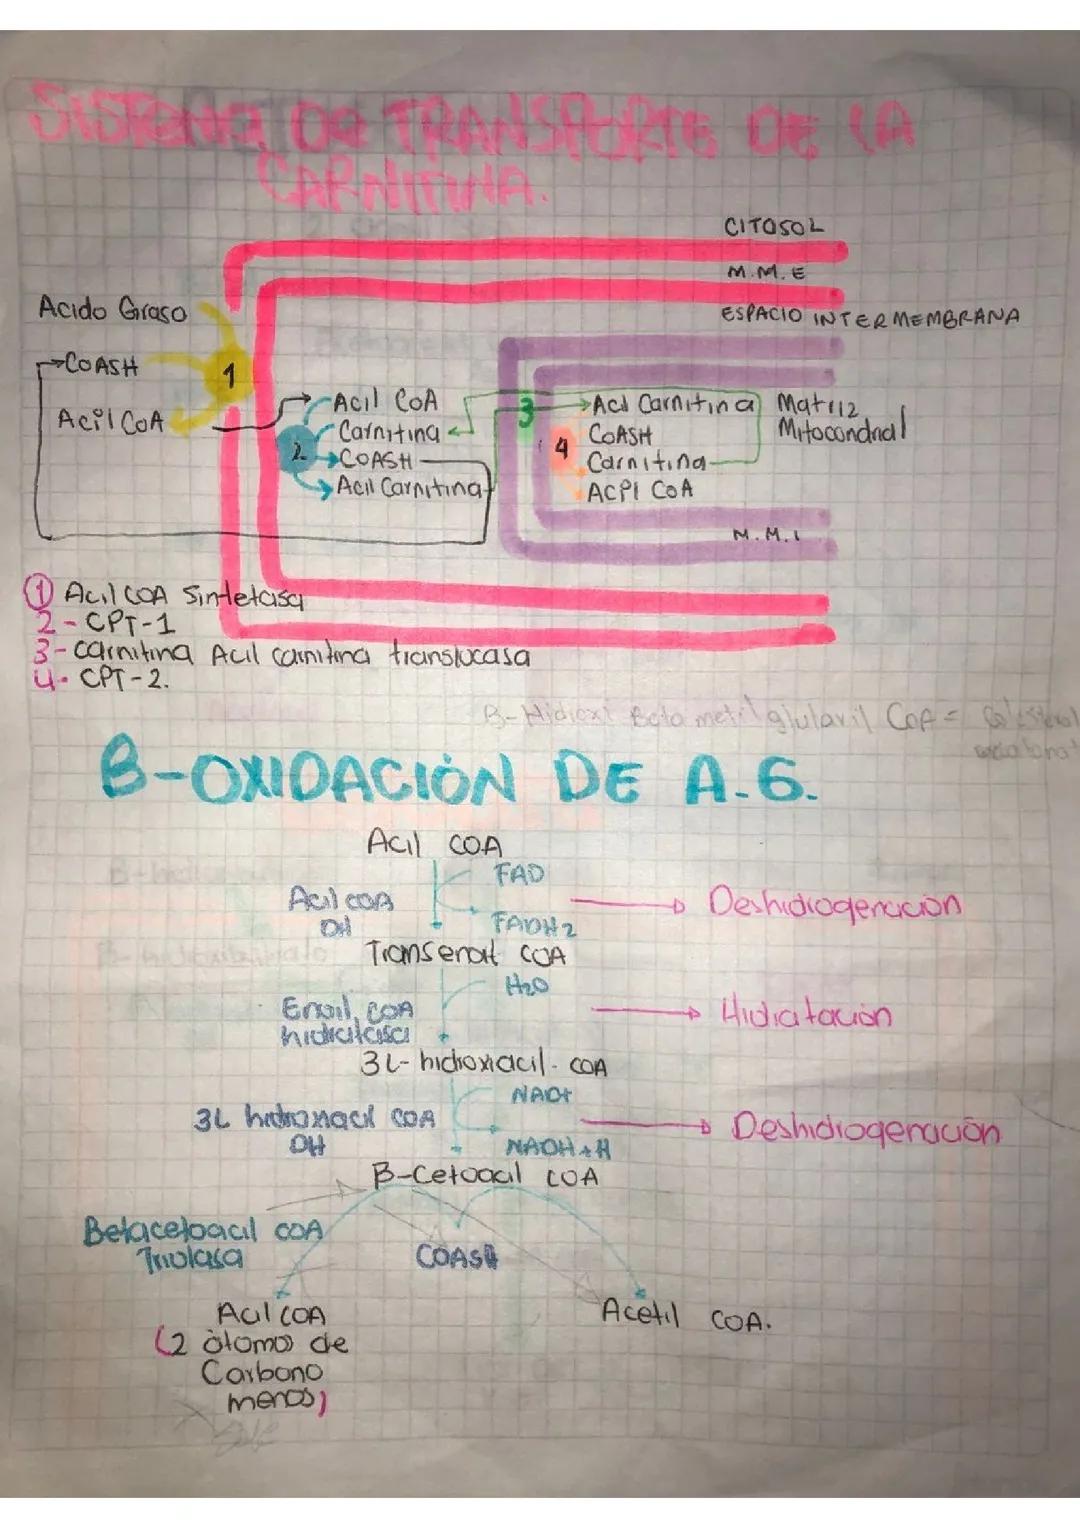 SISTEMA DE TRANSPORTE DE LA
CARNITINA.
CITOSOL
M.M.E
ESPACIO INTERMEMBRANA
Acido Graso
COASH
Acil CoA
1
2
Acil CoA
Carnitina
COASH
Acil Carnitina
3
4
Acil Carnitina
COASH
Carnitina
ACPl COA
Matriz
Mitocondrial
M.M.I
1 Acil COA Sintetasa
2- CPT-1
3- carnitina Acil carnitina translocasa
4. CPT-2.
B-Hidroxi Beta metil glutaril CoA =
B-OXIDACIÓN DE A.G.
Acil COA
FAD
Acil COA
DH
FADH2
Deshidrogenación
Transenoil COA
H2O
Enoil COA
hidratasa
Hidratación
3L-hidroxiacil. COA
NAD+
3L hidroxiacil COA
DH
NADH+H
Deshidrogenación
B-Cetoacil COA
Betacetoacil COA
Tiolasa
COASH
Acil COA
(2 átomos de
Carbono
menos)
Acetil COA.